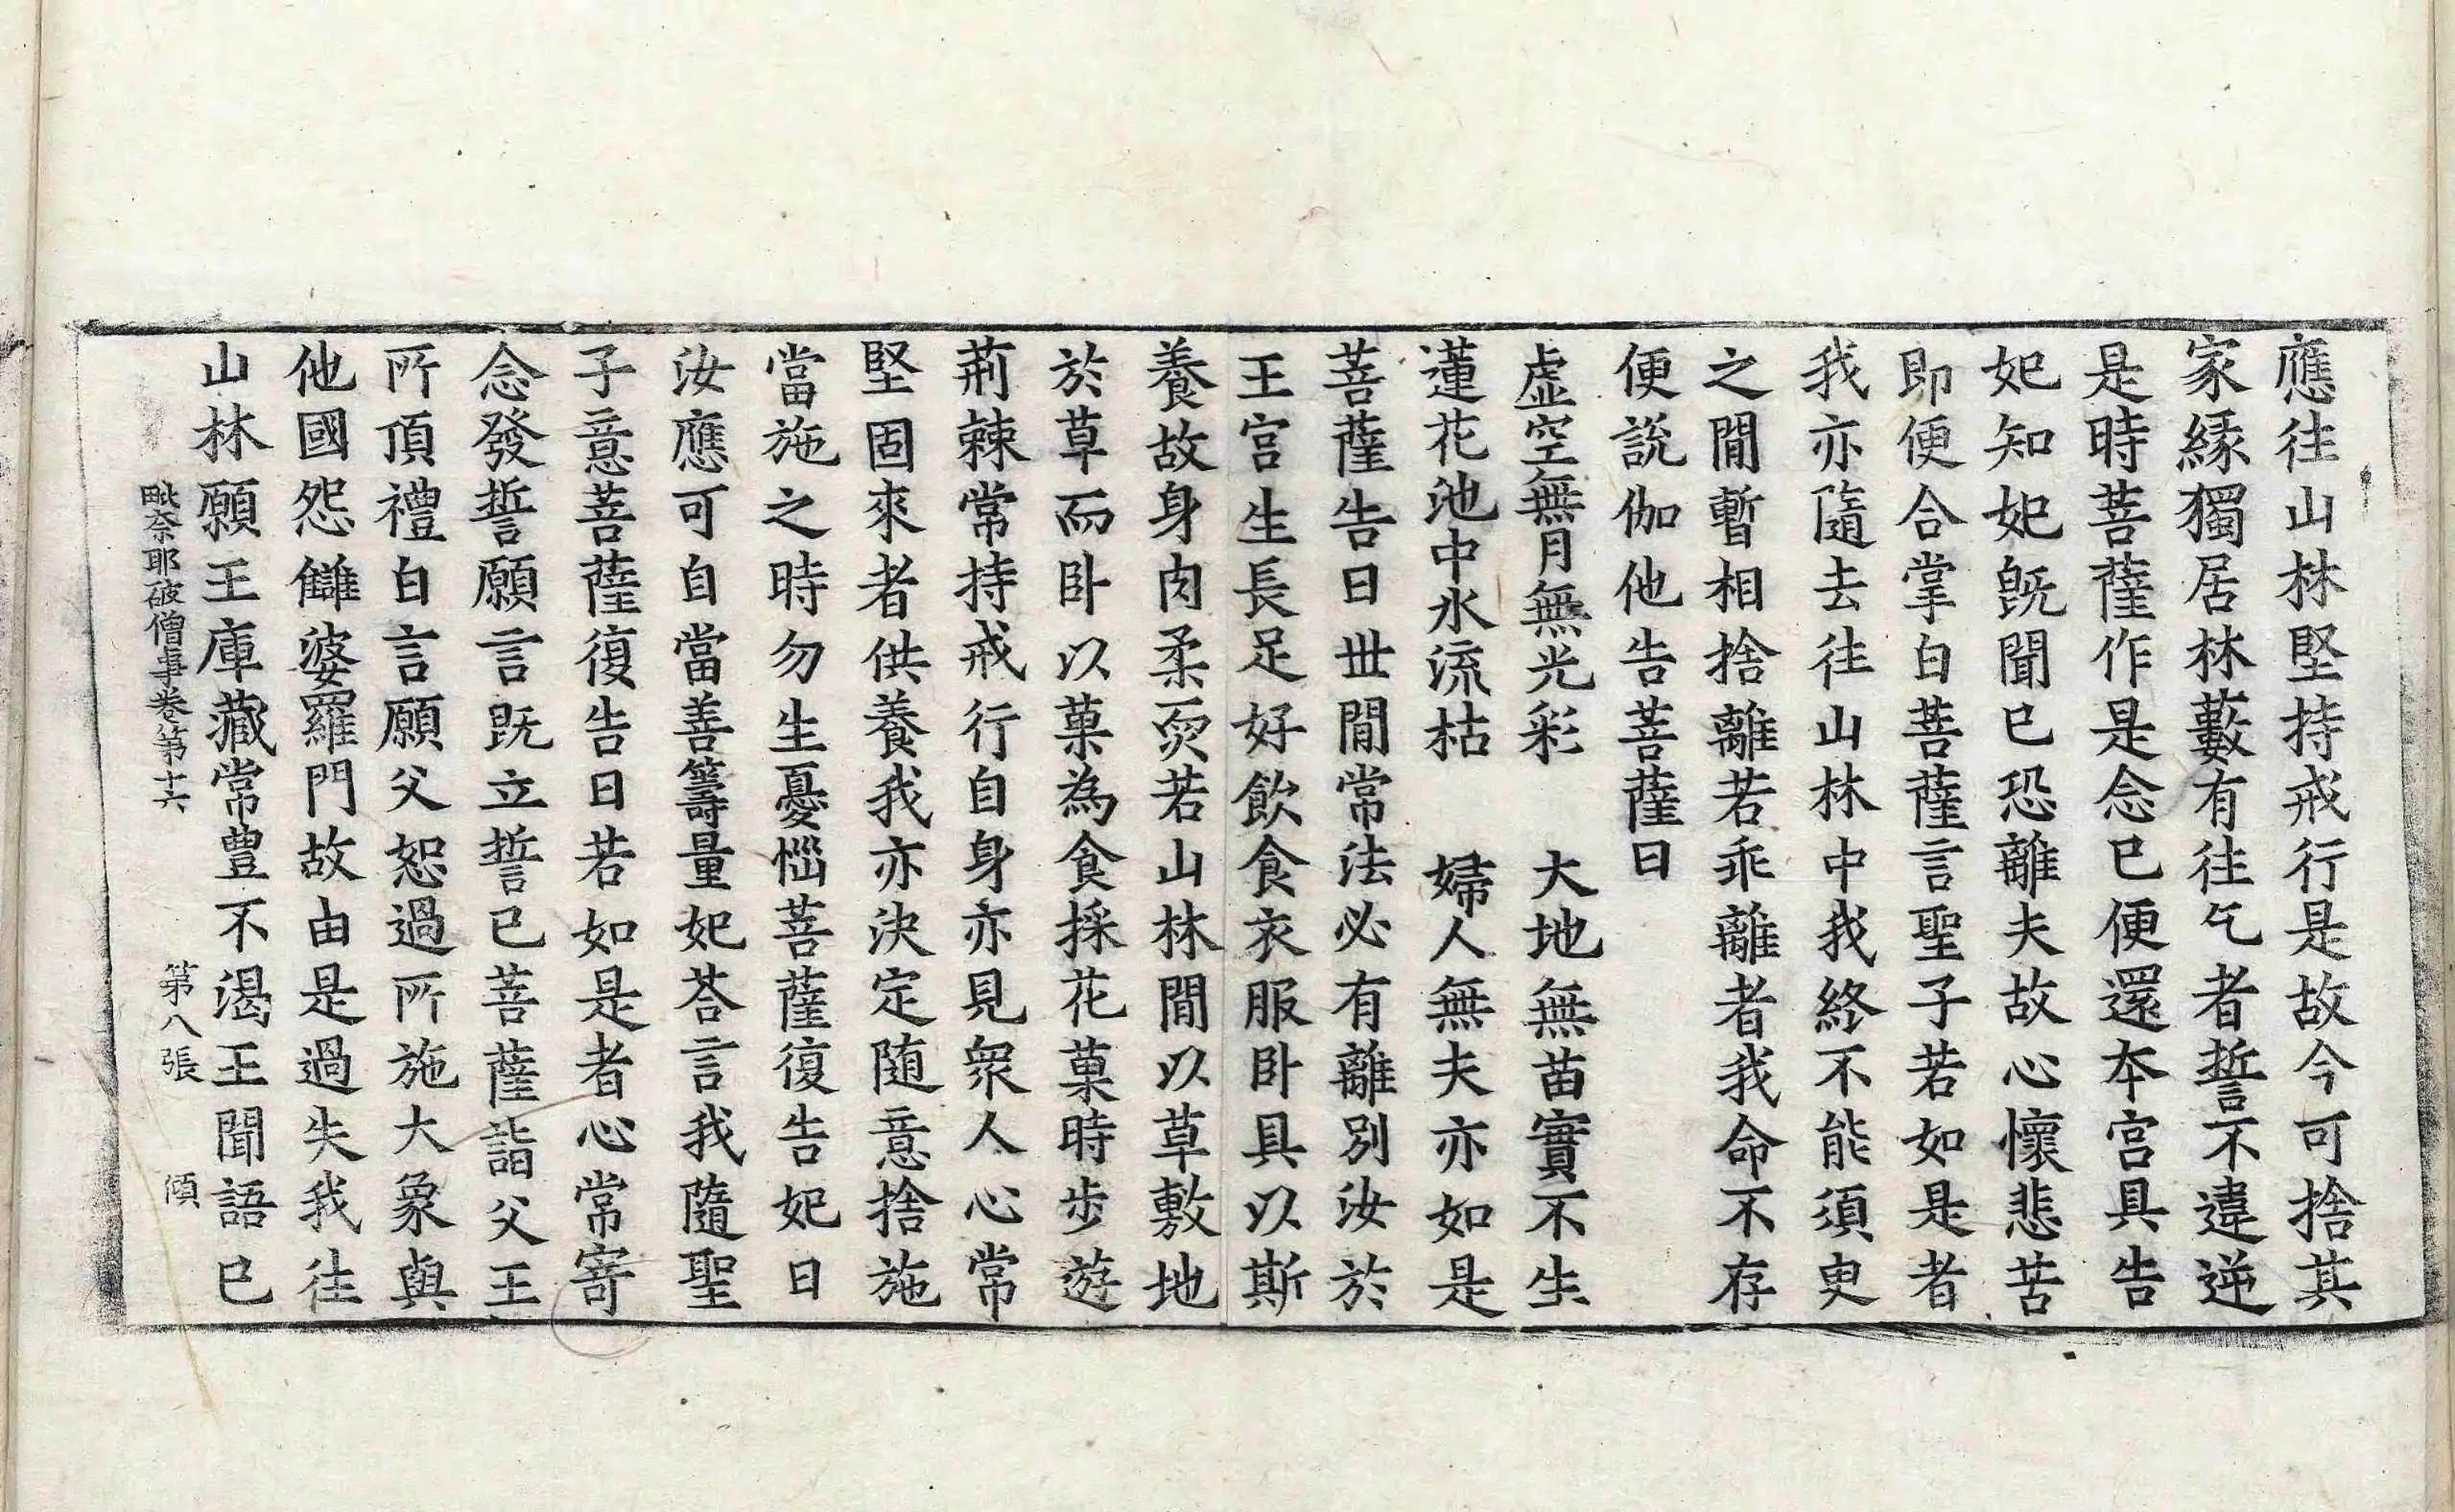 應往山林堅持戒行是故今可捨其
家緣獨居林藪有往乞者誓不違逆
是時菩薩作是念已便還本宮具告
妃知妃旣聞已恐離夫故心懷悲苦
即便合掌白菩薩言聖子若如是者
我亦隨去往山林中我終不能須臾
之閒暫相捨離若乖離者我命不存
便說伽他告菩薩曰
虛空無月無光彩　大地無苗實不生
蓮花池中水流枯　婦人無夫亦如是
菩薩告曰世閒常法必有離別汝於
王宮生長足好飲食衣服卧具以斯
養故身肉柔耎若山林閒以草敷地
於草而卧以菓為食採花菓時步遊
荊棘常持戒行自身亦見衆人心常
堅固來者供養我亦決定随意捨施
當施之時勿生憂惱菩薩復告妃曰
汝應可自當善籌量妃荅言我隨聖
子意菩薩復告曰若如是者心常寄
念發誓願言旣立誓已菩薩詣父王
所頂禮白言願父恕過所施大象與
他國怨讎婆羅門故由是過失我往
山林願王庫藏常豊不渴王聞語已
毗奈耶破僧事卷第十六　第八張　傾